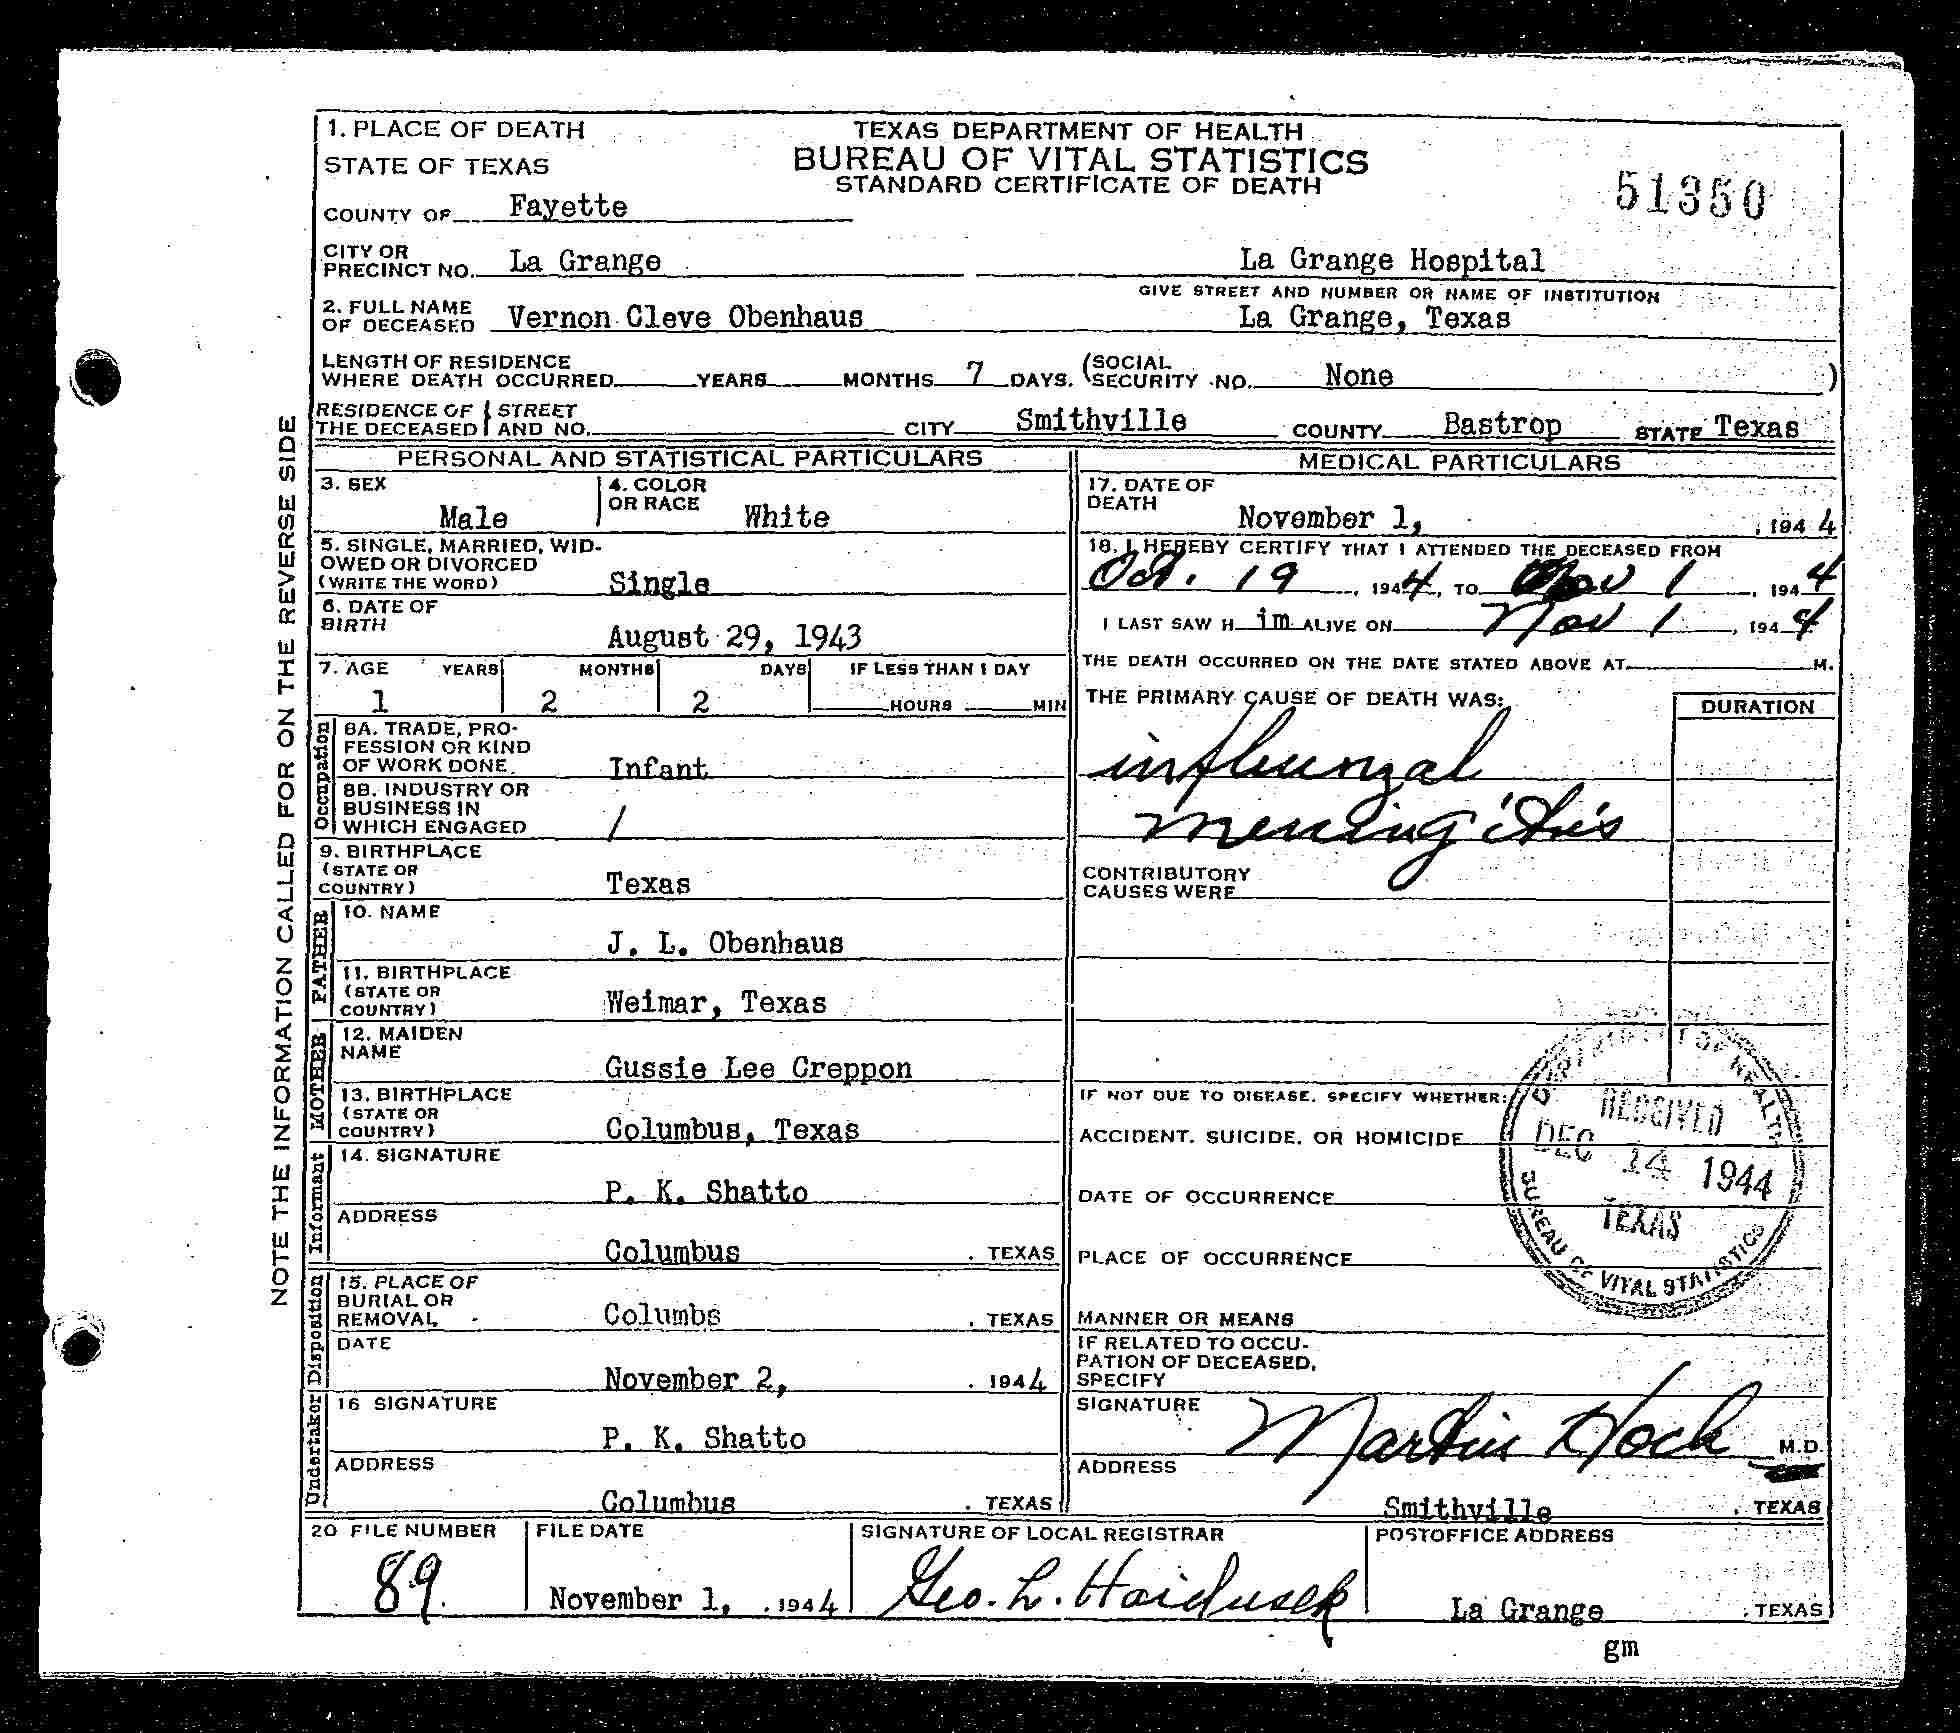 1. PLACE OF DEATH
STATE OF TEXAS
TEXAS DEPARTMENT OF HEALTH
BUREAU OF VITAL STATISTICS
STANDARD CERTIFICATE OF DEATH
51350
COUNTY OF Fayette
CITY OR PRECINCT NO. La Grange
La Grange Hospital
GIVE STREET AND NUMBER OR NAME OF INSTITUTION
2. FULL NAME OF DECEASED Vernon Cleve Obenhaus
La Grange, Texas
LENGTH OF RESIDENCE
WHERE DEATH OCCURRED YEARS MONTHS 7 DAYS. (SOCIAL SECURITY NO. None )
RESIDENCE OF THE DECEASED STREET AND NO. CITY Smithville COUNTY Bastrop STATE Texas
PERSONAL AND STATISTICAL PARTICULARS
3. SEX
Male
4. COLOR OR RACE
White
5. SINGLE, MARRIED, WID-
OWED OR DIVORCED
(WRITE THE WORD) Single
6. DATE OF
BIRTH
August 29, 1943
7. AGE YEARS MONTHS DAYS IF LESS THAN 1 DAY
1 2 2 HOURS MIN
Occupation
8A. TRADE, PRO-
FESSION OR KIND
OF WORK DONE. Infant
8B. INDUSTRY OR
BUSINESS IN
WHICH ENGAGED /
9. BIRTHPLACE
(STATE OR
COUNTRY) Texas
FATHER
10. NAME
J. L. Obenhaus
11. BIRTHPLACE
(STATE OR
COUNTRY) Weimar, Texas
MOTHER
12. MAIDEN
NAME
Gussie Lee Creppon
13. BIRTHPLACE
(STATE OR
COUNTRY) Columbus, Texas
Informant
14. SIGNATURE
P. K. Shatto
ADDRESS
Columbus . TEXAS
Disposition
15. PLACE OF
BURIAL OR
REMOVAL Columbs , TEXAS
DATE
November 2, . 1944
Undertaker
16 SIGNATURE
P. K. Shatto
ADDRESS
Columbus . TEXAS
MEDICAL PARTICULARS
17. DATE OF
DEATH
November 1, , 1944
18. I HEREBY CERTIFY THAT I ATTENDED THE DECEASED FROM
Oct. 19 , 1944, TO Nov 1 , 1944
I LAST SAW H im ALIVE ON Nov 1 , 1944
THE DEATH OCCURRED ON THE DATE STATED ABOVE AT M.
THE PRIMARY CAUSE OF DEATH WAS: DURATION
influenzal
meningitis
CONTRIBUTORY
CAUSES WERE
IF NOT DUE TO DISEASE, SPECIFY WHETHER:
ACCIDENT, SUICIDE, OR HOMICIDE
DATE OF OCCURRENCE
PLACE OF OCCURRENCE
MANNER OR MEANS
IF RELATED TO OCCU-
PATION OF DECEASED,
SPECIFY
DEPARTMENT OF HEALTH
RECEIVED
DEC 14 1944
TEXAS
BUREAU OF VITAL STATISTICS
SIGNATURE Martin Hoch M.D.
ADDRESS
Smithville , TEXAS
20 FILE NUMBER FILE DATE SIGNATURE OF LOCAL REGISTRAR POSTOFFICE ADDRESS
89. November 1, , 1944 Geo. L. Haidusek La Grange , TEXAS
gm
NOTE THE INFORMATION CALLED FOR ON THE REVERSE SIDE